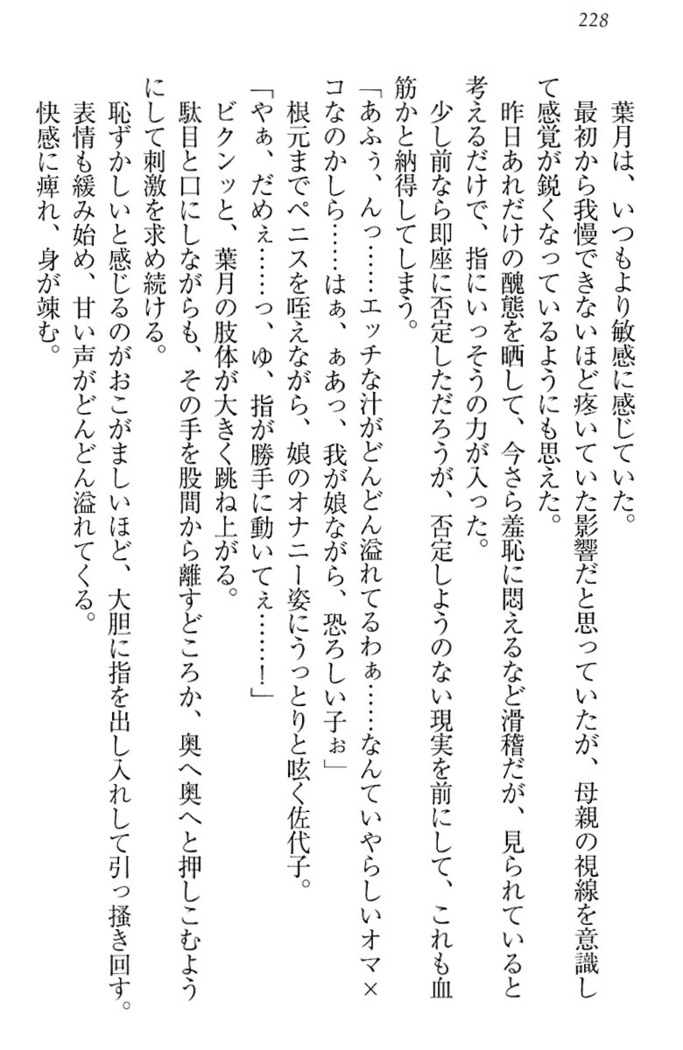 228
葉月は、いつもより敏感に感じていた。
最初から我慢できないほど疼いていた影響だと思っていたが、母親の視線を意識し
て感覚が鋭くなっているようにも思えた。
昨日あれだけの醜態を晒して、今さら羞恥に悶えるなど滑稽だが、見られていると
考えるだけで、指にいっそうの力が入った。
少し前なら即座に否定しただろうが、否定しようのない現実を前にして、これも血
筋かと納得してしまう。
「あふぅ、んっ……エッチな汁がどんどん溢れてるわぁ……なんていやらしいオマ×
コなのかしら……はぁ、ぁあっ、我が娘ながら、恐ろしい子ぉ」
根元までペニスを咥えながら、娘のオナニー姿にうっとりと呟く佐代子。
「やぁ、だめぇ……っ、ゆ、指が勝手に動いてぇ……！」
ビクンッと、葉月の肢体が大きく跳ね上がる。
駄目と口にしながらも、その手を股間から離すどころか、奥へ奥へと押しこむよう
にして刺激を求め続ける。
恥ずかしいと感じるのがおこがましいほど、大胆に指を出し入れして引っ掻き回す。
表情も緩み始め、甘い声がどんどん溢れてくる。
快感に痺れ、身が竦む。